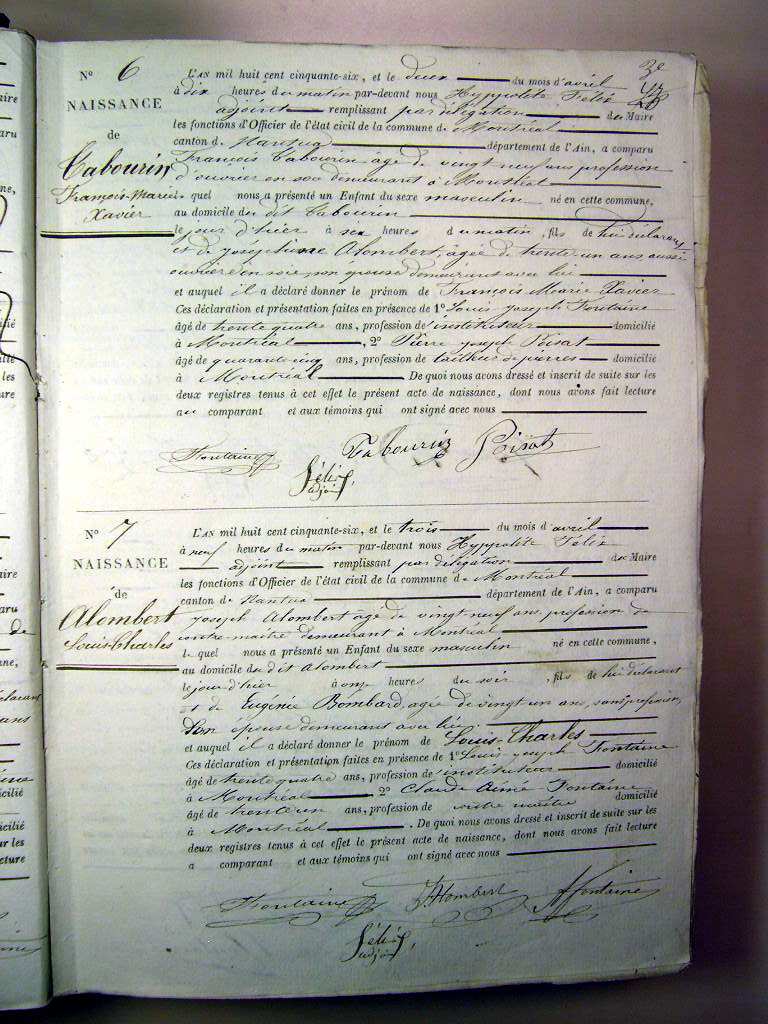 3e
N° 6
NAISSANCE
de
Cabourin
François-Marie
Xavier
L'AN mil huit cent cinquante-six, et le deux du mois d'avril
à dix heures du matin par-devant nous Hyppolite Félix
adjoint remplissant par délégation du Maire
les fonctions d'Officier de l'état civil de la commune de Montréal
canton de Nantua département de l'Ain, a comparu
François Cabourin âgé de vingt neuf ans profession
d'ouvrier en soie demeurant à Montréal
quel nous a présenté un Enfant du sexe masculin né en cette commune,
au domicile du dit Cabourin
le jour d'hier à six heures du matin, fils de lui déclarant
et de Joséphine Alombert, âgée de trente un ans aussi
ouvrière en soie, son épouse demeurant avec lui
et auquel il a déclaré donner le prénom de François Marie Xavier
Ces déclaration et présentation faites en présence de 1° Louis Joseph Fontaine
âgé de trente quatre ans, profession d'instituteur domicilié
à Montréal, 2° Pierre Joseph Poisat
âgé de quarante cinq ans, profession de tailleur de pierres domicilié
à Montréal. De quoi nous avons dressé et inscrit de suite sur les
deux registres tenus à cet effet le présent acte de naissance, dont nous avons fait lecture
au comparant et aux témoins qui ont signé avec nous
Fontaine Cabourin Poisat
Félix
adjoint
N° 7
NAISSANCE
de
Alombert
Louis-Charles
L'AN mil huit cent cinquante-six, et le trois du mois d'avril
à neuf heures du matin par-devant nous Hyppolite Félix
adjoint remplissant par délégation du Maire
les fonctions d'Officier de l'état civil de la commune de Montréal
canton de Nantua département de l'Ain, a comparu
Joseph Alombert âgé de vingt neuf ans profession de
contre-maître demeurant à Montréal
le quel nous a présenté un Enfant du sexe masculin né en cette commune,
au domicile du dit Alombert
le jour d'hier à onze heures du soir, fils de lui déclarant
et de Eugénie Bombard, agée de vingt un ans, sans profession,
son épouse demeurant avec lui.
et auquel il a déclaré donner le prénom de Louis-Charles
Ces déclaration et présentation faites en présence de 1° Louis Joseph Fontaine
âgé de trente quatre ans, profession d'instituteur domicilié
à Montréal 2° Claude Aimé Fontaine
âgé de trente un ans, profession de contre maître domicilié
à Montréal. De quoi nous avons dressé et inscrit de suite sur les
deux registres tenus à cet effet le présent acte de naissance, dont nous avons fait lecture
a comparant et aux témoins qui ont signé avec nous
Fontaine J. Alombert A Fontaine
Félix
adjoint